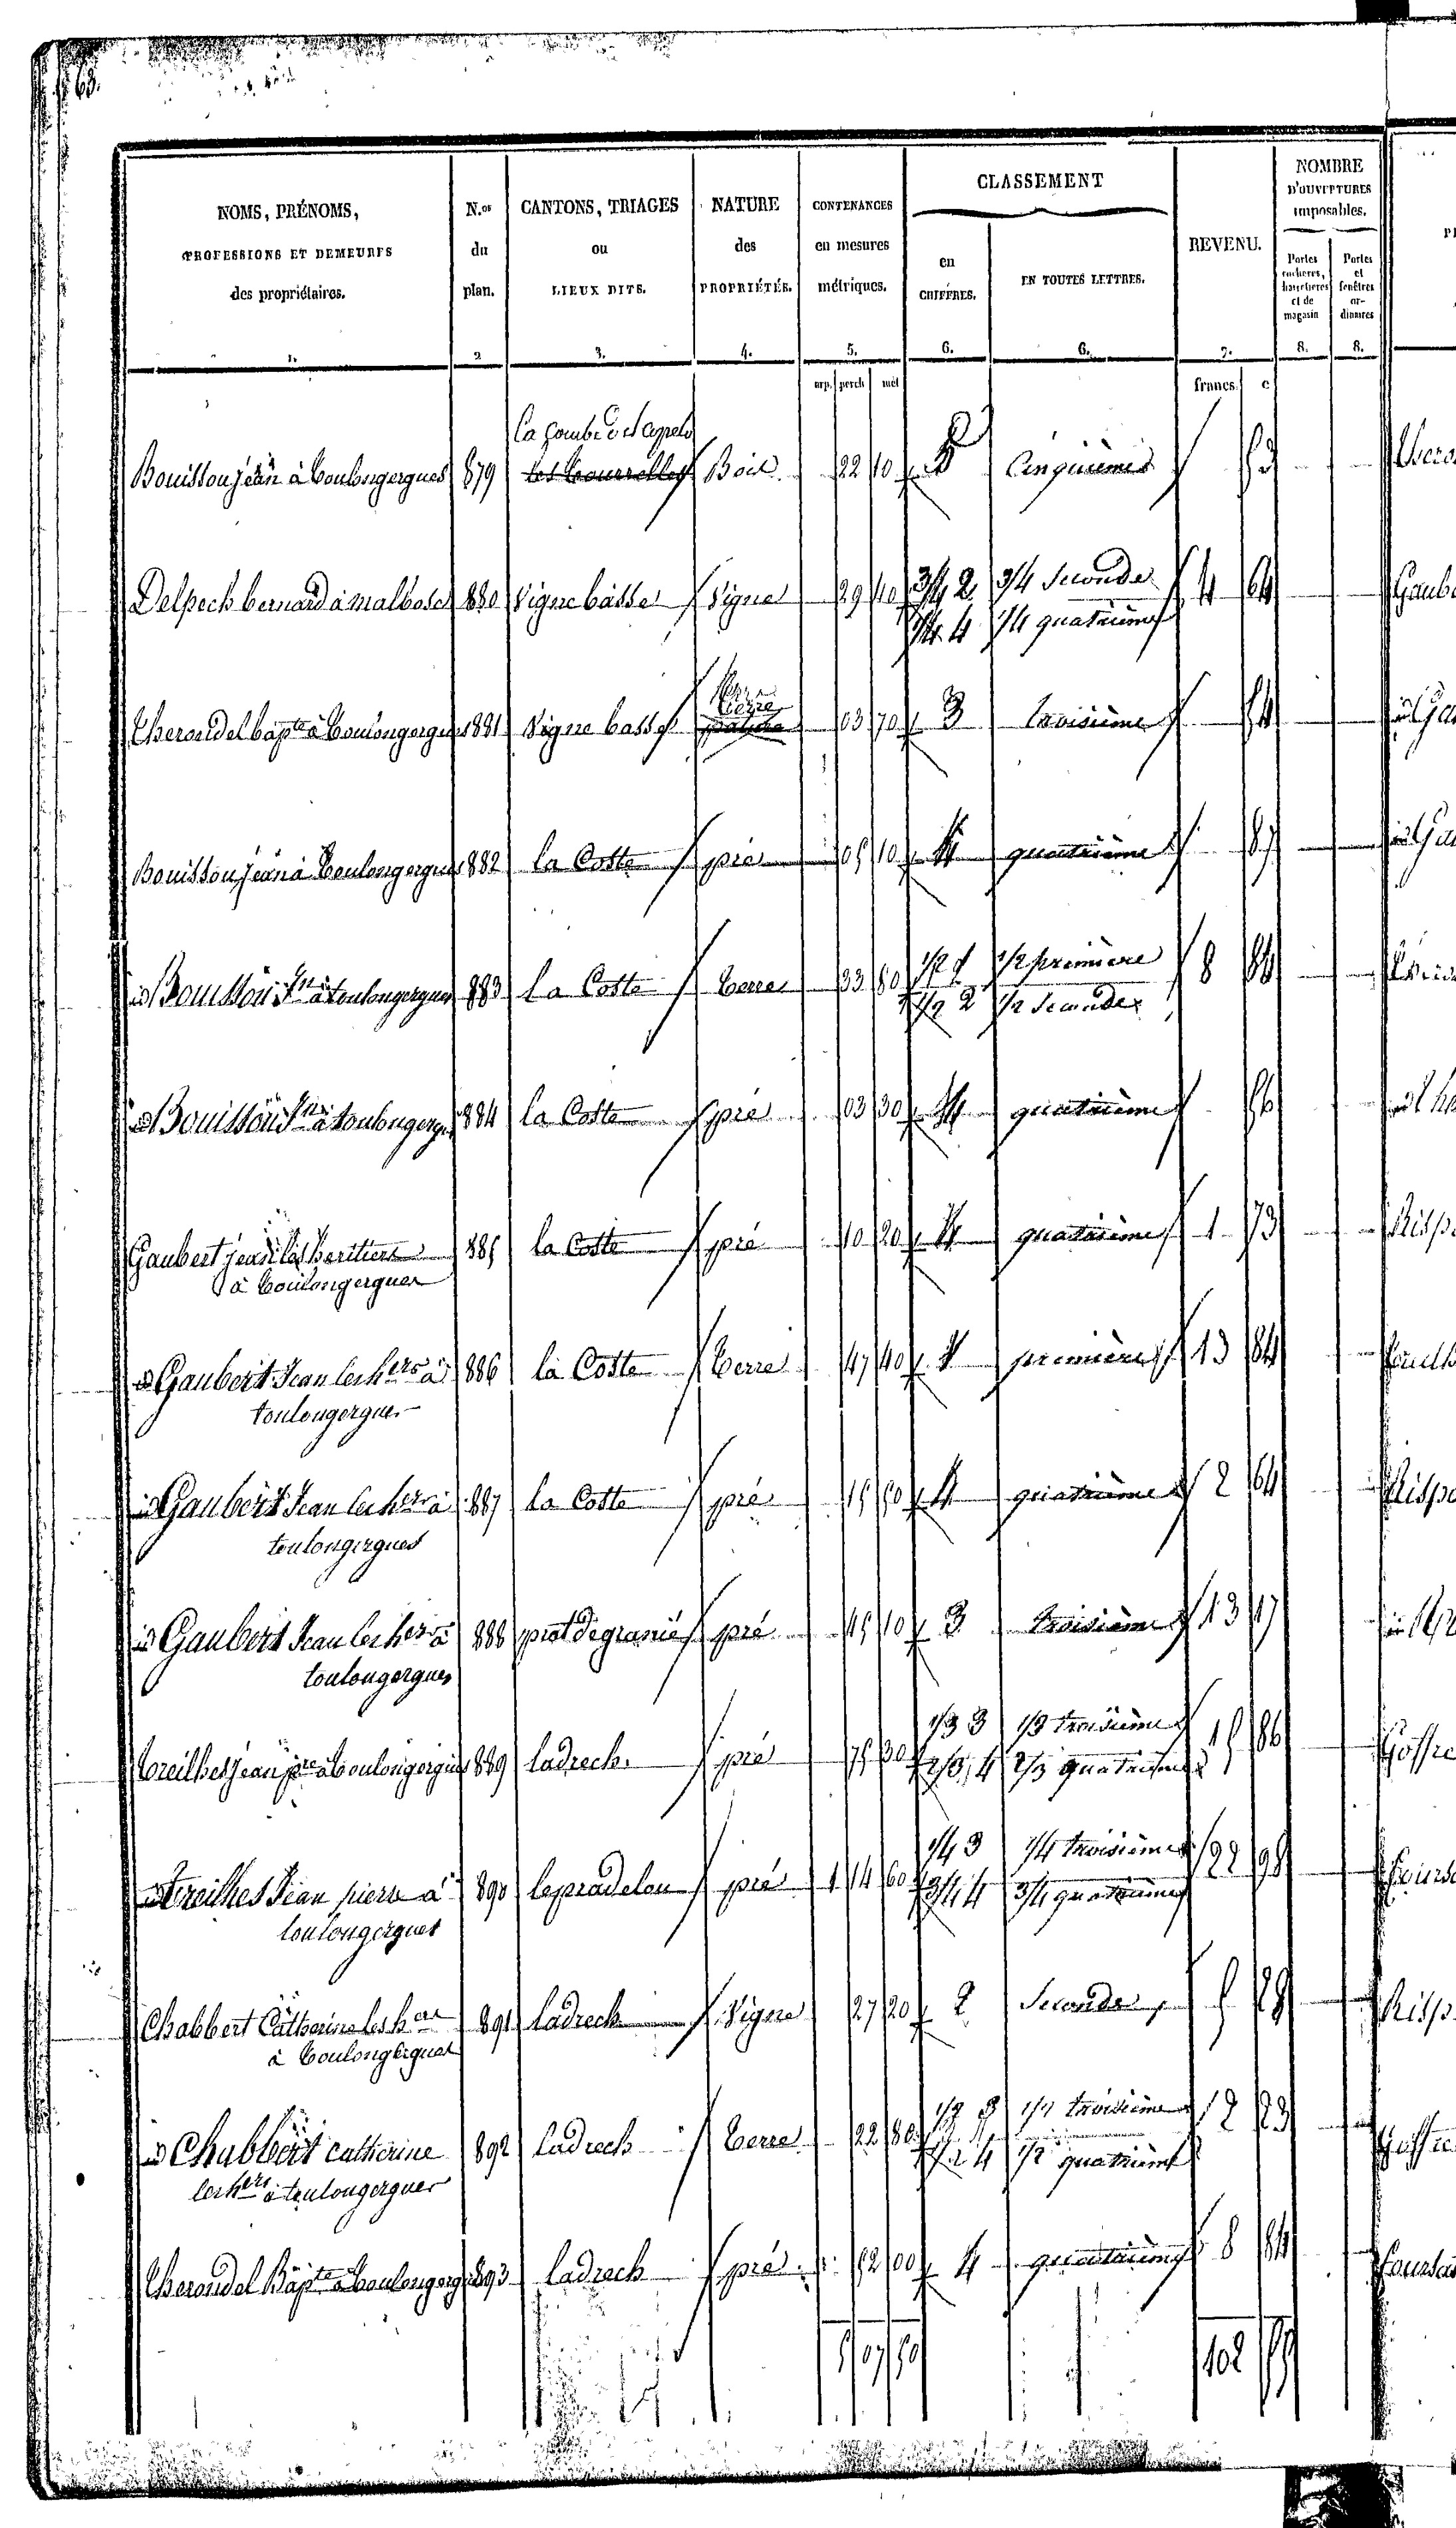 63.
NOMS, PRÉNOMS, PROFESSIONS ET DEMEURES des propriétaires. 1.
N.os du plan. 2
CANTONS, TRIAGES ou LIEUX DITS. 3.
NATURE des PROPRIÉTÉS. 4.
CONTENANCES en mesures métriques. 5.
CLASSEMENT
en CHIFFRES. 6.
EN TOUTES LETTRES. 6.
REVENU. 7.
NOMBRE D'OUVERTURES imposables.
Portes cochères, batardieres et de magasin 8.
Portes et fenêtres ordinaires 8.
arp. perch mèt francs. c
Bouissou jean à Toulongergues 879 Les Tourrelles Bois 22 10 5 Cinquième
Delpech bernard à malbosc 880 Vigne basse Vigne 29 40 3/4 2 3/4 Seconde 4 64
1/4 4 1/4 quatrième
Therondel bapte à Toulongergues 881 Vigne basse terre 03 70 3 troisième 54
Bouissou jean à Toulongergues 882 la Coste pré 05 10 4 quatrième 87
id Bouissou Jn à toulongergues 883 la Coste Terre 33 80 1/2 1 1/2 première 8 84
1/2 2 1/2 Seconde
id Bouissou Jn à toulongergues 884 la Coste pré 03 30 4 quatrième 56
Gaubert jean les heritiers 885 la Coste pré 10 20 4 quatrième 1 73
à Toulongergues
id Gaubert Jean les hers à 886 la Coste Terre 47 40 1 première 13 84
toulongergues
id Gaubert Jean les hers à 887 la Coste pré 15 50 4 quatrième 2 64
toulongergues
id Gaubert Jean les hers à 888 prat de granié pré 45 10 3 troisième 13 17
toulongergues
Treilhes jean pre à Toulongergues 889 ladrech pré 75 30 1/3 3 1/3 troisième 15 86
2/3 4 2/3 quatrième
id Treilhes Jean pierre à 890 le pradelou pré 1 14 60 1/4 3 1/4 troisième 22 98
3/4 4 3/4 quatrième
toulongergues
Chabbert Catherine les hers 891 ladrech Vigne 27 20 2 Seconde 5 29
à Toulongergues
id Chabbert Catherine 892 ladrech Terre 22 80 1/2 3 1/2 troisième 2 23
1/2 4 1/2 quatrième
les hers à toulongergues
Therondel Bapte à Toulongergues 893 ladrech pré 52 00 4 quatrième 8 84
5 07 50 102